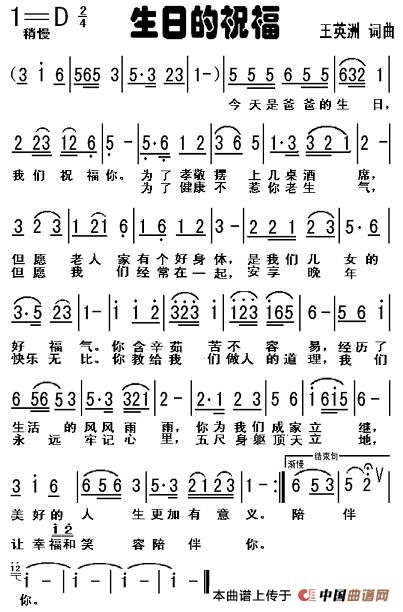 生日的祝福
1=D 2/4
稍慢
王英洲 词曲
(3 i 6 | 565 3 | 5·3 23 | 1-) | 5 5 5 | 6 5 5 | 632 1 |
今天是爸爸的生日,
2 23 | 12 6 | 5 - | 5·6 1 2 | 3 3 6 5 | 1·3 | 3 2 1 |
我们祝福你。为了孝敬摆上几桌酒席,
为了健康不惹你老生气,
3 2 3 | 1 2 1 | 6 1 2 | 3 - | 2 2 1 | 2 2 3 | 5·6 |
但愿老人家有个好身体,是我们儿女的
但愿我们经常在一起,安享晚年
3·5 23 | 1 - | i i 2 | 323 i | 2 3 2 | 1 6 5 | i·i |
好福气。你含辛茹苦不容易,经历了
快乐无比。你教给我们做人的道理,我们
6 56 53 | 5·3 321 | 2 - | 2·1 | 3 5 6 | 2·3 5 | 1 615 |
生活的风风雨雨,你为我们成家立继,
永远牢记心里,五尺身躯顶天立地,
渐慢 结束句
3 i 6 | 565 3 | 5·3 23 | 1 - :| 6 5 3 | 5 i 2 V |
美好的人生更加有意义。陪伴
i i 2
让幸福和笑容陪伴你。
12 i - | i - | i - | i - ||
你.
本曲谱上传于
中国曲谱网